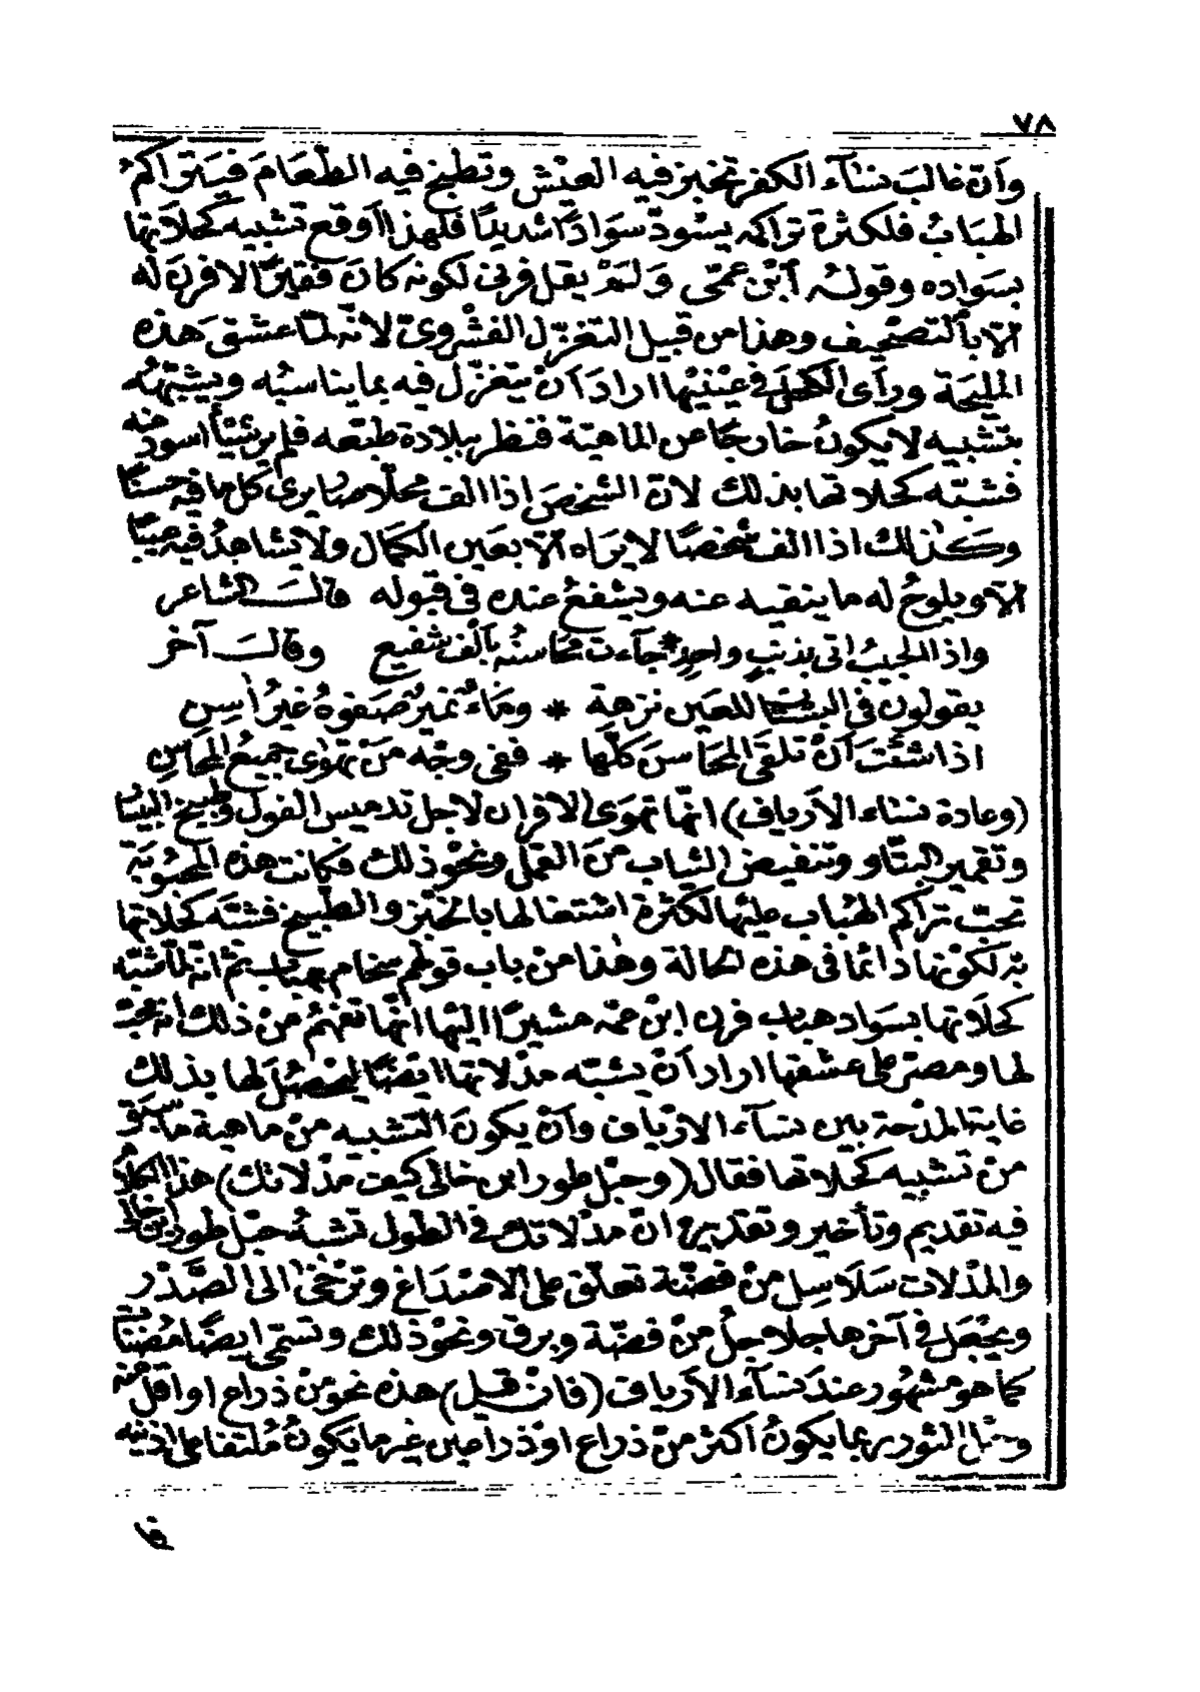 ٧٨
وأنّ غالب نسآء الكفر تخبز فيه العيْش وتطبخ فيه الطّعَامَ فيَتراكمُ
الهبَابُ فلكثرة تراكمه يسْودّ سوَادًا شديدًا فلهذا أوقع تشبيه كحلاتها
بسَواده وقولُه اَبْن عمّى وَلَمْ يقل فرنى لكونه كانَ فقيرًا لا فرن له
الّا بألتصْحيف وهذا من قبيل التغزّل الفشْروىّ لأنّه لمّا عشق هَذه
المليحَة ورأى الكحْل في عيْنيْها ارادَ أنْ يتغزّل فيه بما يناسبُه ويشبّههُ
بتشبيه لا يكونُ خارجًا عن الماهيّة فنظر ببلادة طبْعه فلم ير شيئًا اسودَ منه
فشبّه كحلاتها بذلك لانّ الشخصَ اذا الف محلّا صار يرى كلّ ما فيه حسنًا
وكذلك اذا الف شخصًا لا يرَاه الّا بعَين الكمَال ولا يشاهدُ فيه عيبًا
الّا ويلوحُ له ما ينقيه عنه ويشفعُ عنده فى قبوله قالَ الشاعر
واذا الحبيبُ اتى بذنبٍ واحِدٍ * جآءت محَاسنُه بألْف شفيع وقالَ آخر
يقولون فى البستان للعَين نزهة * ومَاءٌ نميرٌ صَفوهُ غيرُ أسِن
اذا شئتَ أنْ تلقَى المحَاسنَ كلّها * ففى وجْه مَنْ تهوَى جميعُ المحَاسِن
(وعادة نساء الأرياف) انّما تهوَى الافران لاجل تدميس الفول وطبيخ البيسَار
وتقمير البتّاو وتنفيض الثياب منَ القمْل ونحْو ذلك فكانت هذه المحبُوبَة
تحت تراكم الهبَاب عليْها لكثرة اشتغالها بالخبْز والطّبيخ فشبّه كحْلاتها
به لكوْنها دائمًا فى هذه الحالة وهذا منْ باب قولهم سخام بهبَاب ثمّ انّه لمّا شبّه
كحْلَاتها بسَواد هباب فرن ابْن عمّه مشيرًا اليْها انّها تفهمُ منْ ذلك أنه محبّ
لها ومصرّ على عشقها ارادَ أنْ يشبّه مدْلاتها ايْضًا ليحْصُلَ لها بذلك
غاية المدْحة بين نسآء الارْياف وأنْ يكونَ التشبيه منْ ماهية ما سبَق
منْ تشبيه كحْلاتها فقال (وحبْل طور ابن خالى كيف مدْلاتك) هذا الكلامُ
فيه تقديم وتأخير وتقديره انّ مدْلاتك في الطول تشبهُ حبْل طور ابن خالى
والمدْلات سَلَاسِل منْ فضّة تعلّق على الاصْدَاغ وترْخَى الى الصَّدْر
ويجْعَل فى آخرها جلاجلُ منْ فضّة وبرق ونحْو ذلك وتسمّى ايضًا
كما هو مشهُور عندَ نسآء الأرياف (فانْ قيل) هذه نحو منْ ذراع او اقلّ منه
وحبْل الثور ربما يكونُ أكثرَ منْ ذراع اوْ ذراعين غير ما يكونُ مُلتفا على اذنيْه
فا